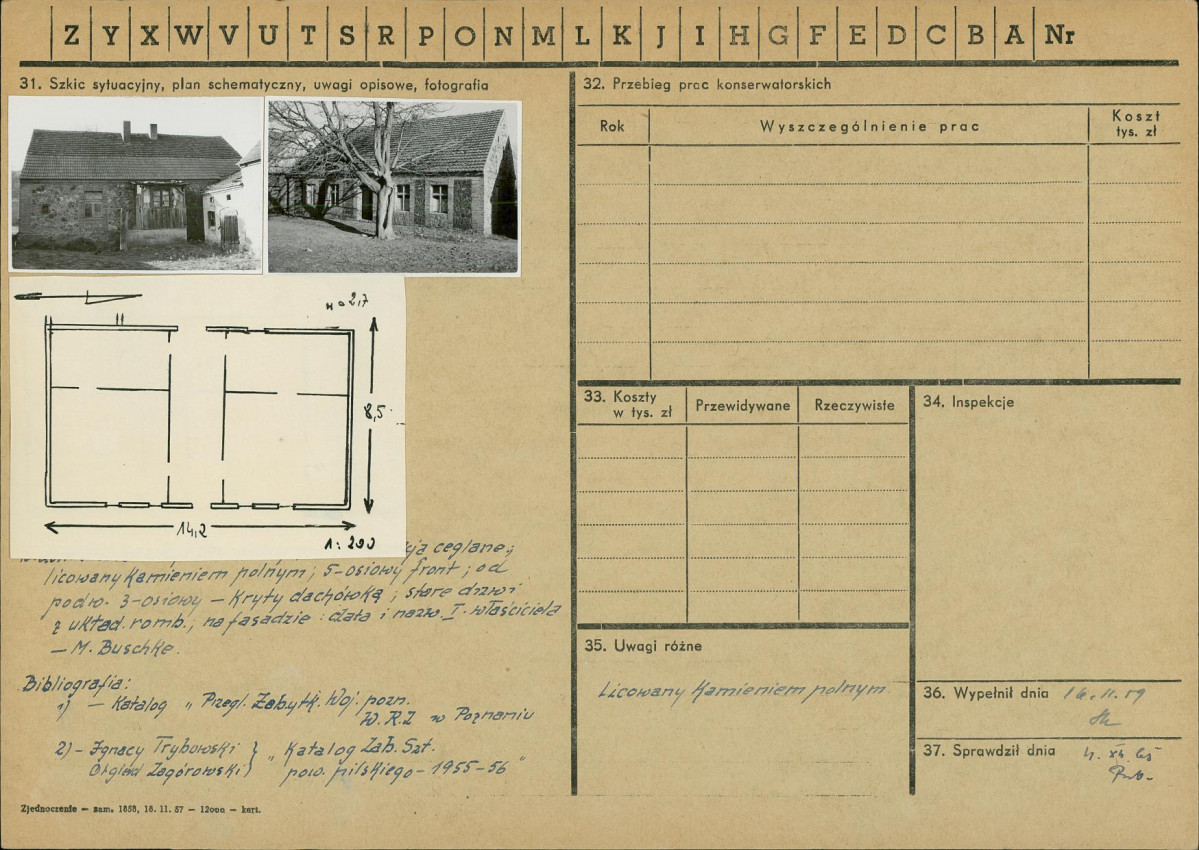 Z Y X W V U T S R P O N M L K J I H G F E D C B A Nr
31. Szkic sytuacyjny, plan schematyczny, uwagi opisowe, fotografia
H = 2,7
8,5
14,2
1:200
cja ceglane;
licowany kamieniem polnym; 5-osiowy front; od
podw. 3-osiowy – kryty dachówką; stare drzwi
z układ. romb., na fasadzie: data i nazw. I. właściciela
– M. Buschke.
Bibliografia:
1) – Katalog „Przegl. Zabytk. Woj. pozn.
W.R.Z w Poznaniu
2) – Ignacy Trybowski } „Katalog Zab. Szt.
Zagórowski) pow. pilskiego – 1955-56"
Zjednoczenie — zam. 1858, 18. 11. 57 — 12000 — kart.
32. Przebieg prac konserwatorskich
Rok Wyszczególnienie prac Koszt tys. zł
33. Koszty w tys. zł Przewidywane Rzeczywiste
34. Inspekcje
35. Uwagi różne
Licowany kamieniem polnym
36. Wypełnił dnia 16.11.59
37. Sprawdził dnia